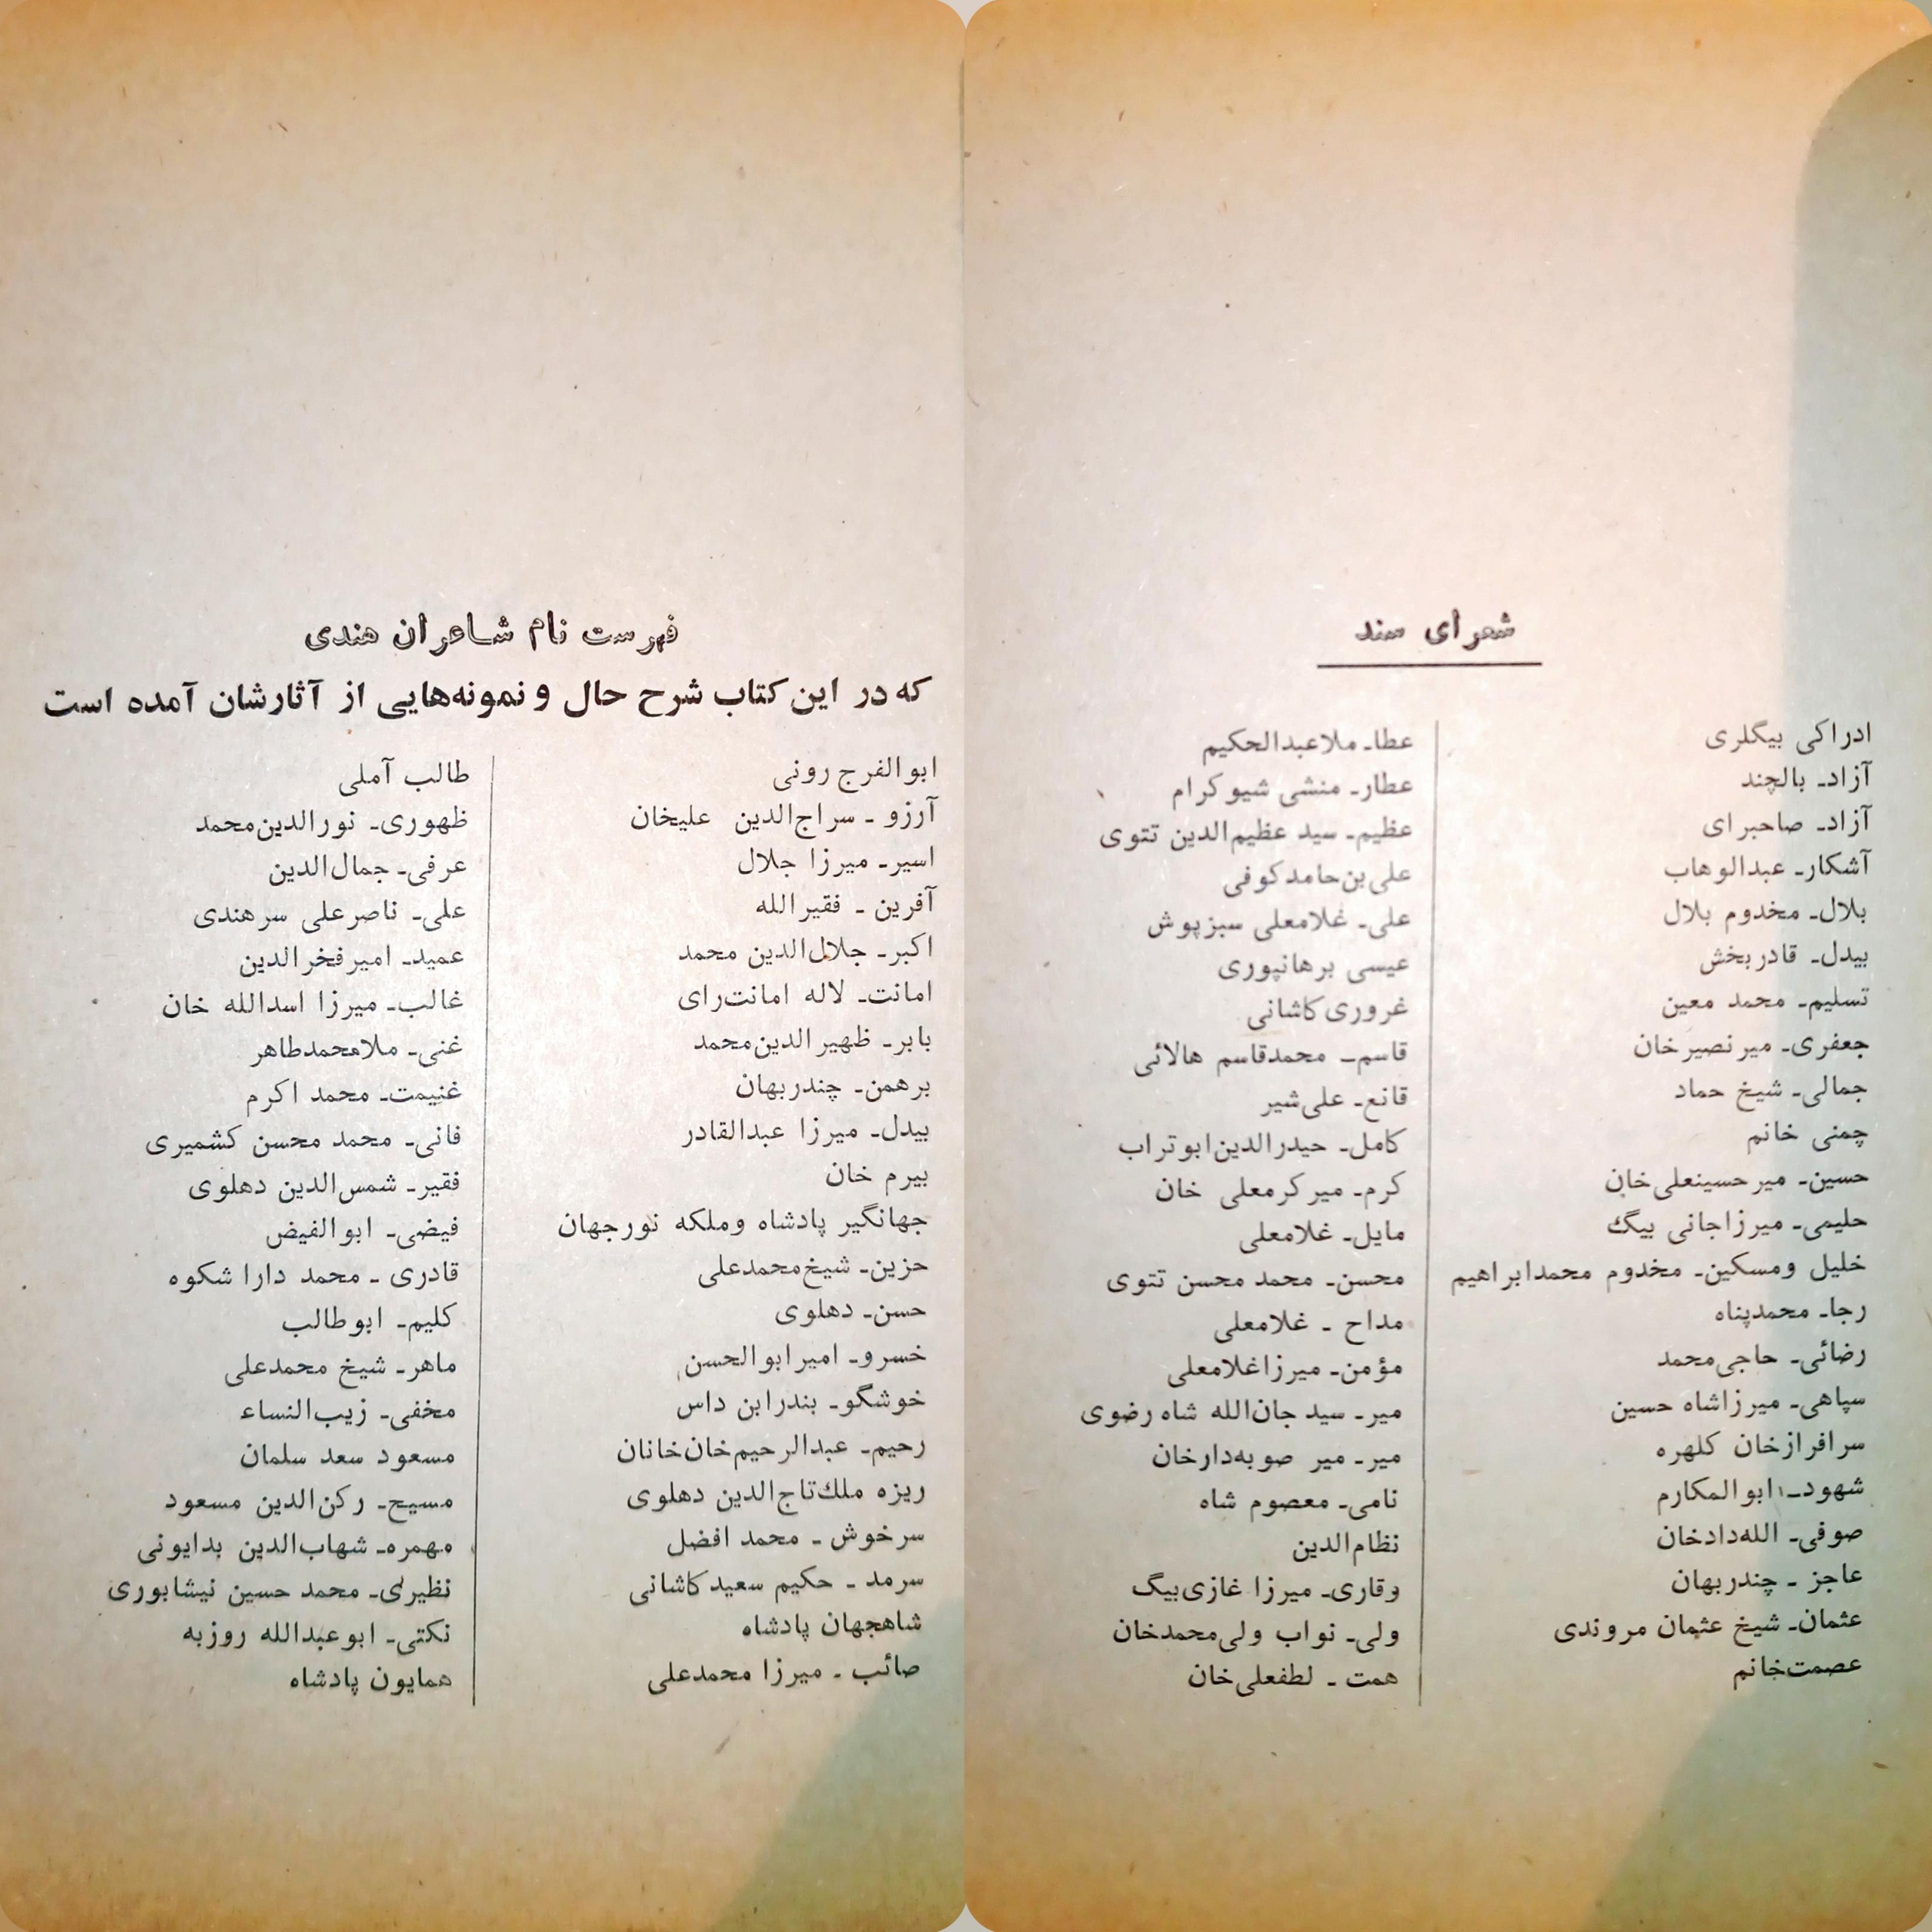 شعرای سند
ادراکی بیگلری
آزاد۔ بالچند
آزاد۔ صاحبرای
آشکار۔ عبدالوهاب
بلال۔ مخدوم بلال
بیدل۔ قادربخش
تسلیم۔ محمد معین
جعفری۔ میرنصیرخان
جمالی۔ شیخ حماد
چمنی خانم
حسین۔ میرحسینعلی‌خان
حلیمی۔ میرزاجانی بیگ
خلیل ومسکین۔ مخدوم محمدابراهیم
رجا۔ محمدپناه
رضائی۔ حاجی‌محمد
سپاهی۔ میرزاشاه حسین
سرافرازخان کلهره
شهود۔ ابوالمکارم
صوفی۔ الله‌دادخان
عاجز ۔ چندربهان
عثمان۔ شیخ عثمان مروندی
عصمت‌خانم
عطا۔ ملاعبدالحکیم
عطار۔ منشی شیوکرام
عظیم۔ سید عظیم‌الدین تتوی
علی‌بن‌حامدکوفی
علی۔ غلامعلی سبزپوش
عیسی برهانپوری
غروری‌کاشانی
قاسم۔ محمدقاسم هالائی
قانع۔ علی‌شیر
کامل۔ حیدرالدین‌ابوتراب
کرم۔ میرکرمعلی خان
مایل۔ غلامعلی
محسن۔ محمد محسن تتوی
مداح ۔ غلامعلی
مؤمن۔ میرزاغلامعلی
میر۔ سید جان‌الله شاه رضوی
میر۔ میر صوبه‌دارخان
نامی۔ معصوم شاه
نظام‌الدین
وقاری۔ میرزا غازی‌بیگ
ولی۔ نواب ولی‌محمدخان
همت ۔ لطفعلی‌خان
فهرست نام شاعران هندی
که در این کتاب شرح حال و نمونه‌هایی از آثارشان آمده است
ابوالفرج رونی
آرزو ۔ سراج‌الدین علیخان
اسیر۔ میرزا جلال
آفرین ۔ فقیرالله
اکبر۔ جلال‌الدین محمد
امانت۔ لاله امانت‌رای
بابر۔ ظهیرالدین‌محمد
برهمن۔ چندربهان
بیدل۔ میرزا عبدالقادر
بیرم خان
جهانگیر پادشاه وملکه نورجهان
حزین۔ شیخ‌محمدعلی
حسن۔ دهلوی
خسرو۔ امیرابوالحسن
خوشگو۔ بندرابن داس
رحیم۔ عبدالرحیم‌خان‌خانان
ریزه ملك‌تاج‌الدین دهلوی
سرخوش ۔ محمد افضل
سرمد ۔ حکیم سعیدکاشانی
شاهجهان پادشاه
صائب ۔ میرزا محمدعلی
طالب آملی
ظهوری۔ نورالدین‌محمد
عرفی۔ جمال‌الدین
علی۔ ناصرعلی سرهندی
عمید۔ امیرفخرالدین
غالب۔ میرزا اسدالله خان
غنی۔ ملامحمدطاهر
غنیمت۔ محمد اکرم
فانی۔ محمد محسن کشمیری
فقیر۔ شمس‌الدین دهلوی
فیضی۔ ابوالفیض
قادری ۔ محمد دارا شکوه
کلیم۔ ابوطالب
ماهر۔ شیخ محمدعلی
مخفی۔ زیب‌النساء
مسعود سعد سلمان
مسیح۔ رکن‌الدین مسعود
مهمره۔ شهاب‌الدین بدایونی
نظیری۔ محمد حسین نیشابوری
نکتی۔ ابوعبدالله روزبه
همایون پادشاه